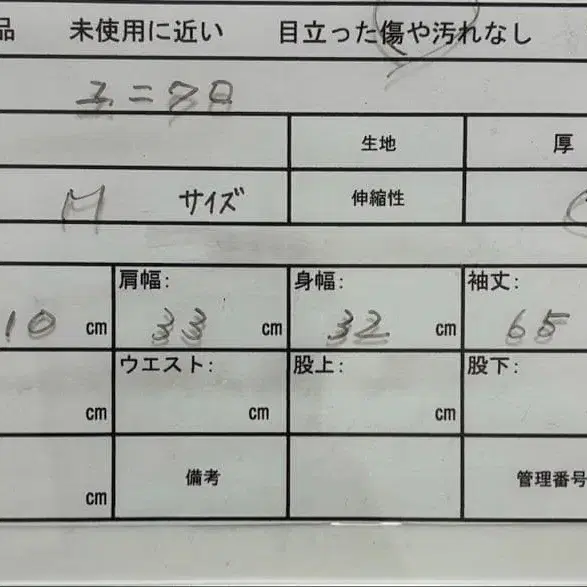 品 未使用に近い 目立った傷や汚れなし
生地 厚
M サイズ 伸縮性
肩幅: 身幅: 袖丈:
10 cm 33 cm 32 cm 65
ウエスト: 股上: 股下:
cm cm cm
cm 備考 管理番号